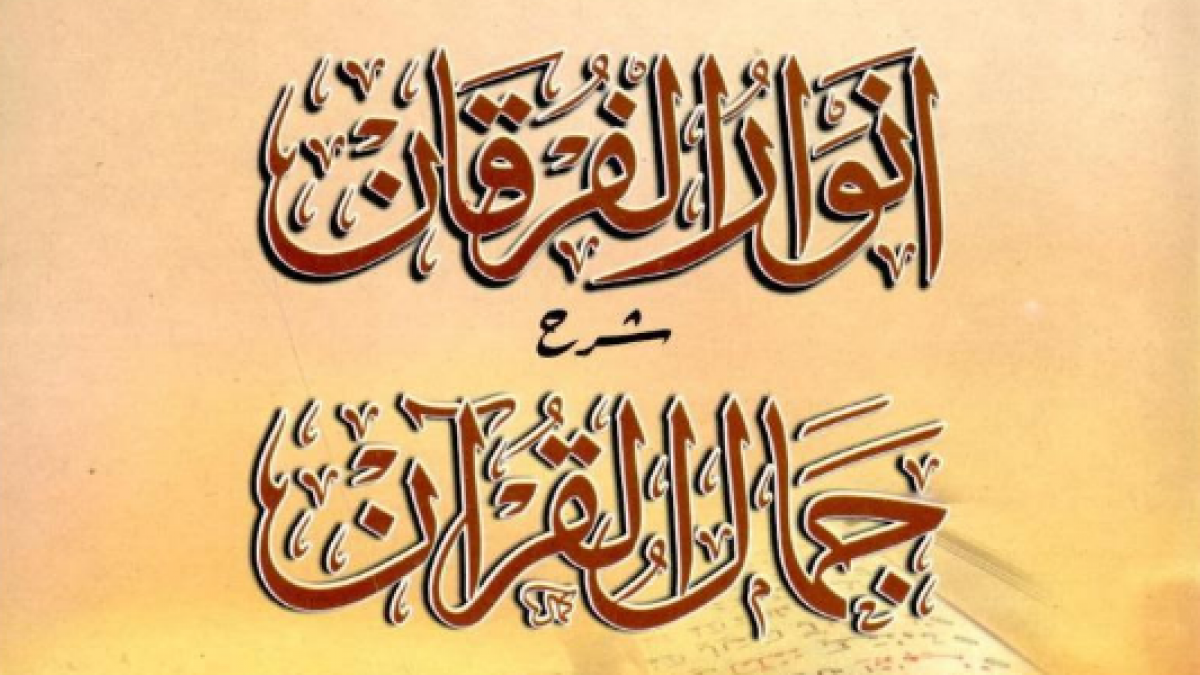 انوَارُ الفُرقَان
شرح
جَمَالُ القُرآن